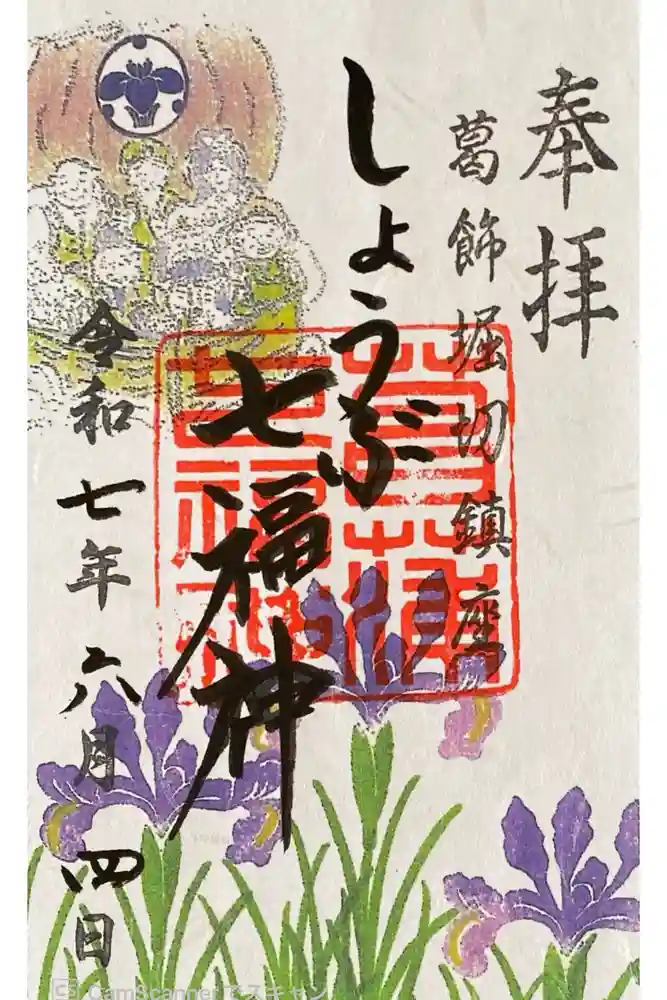 奉拝
葛飾堀切鎮座
しょうぶ
七福神
菖蒲
七福神
令和七年六月四日
CamScanner でスキャン